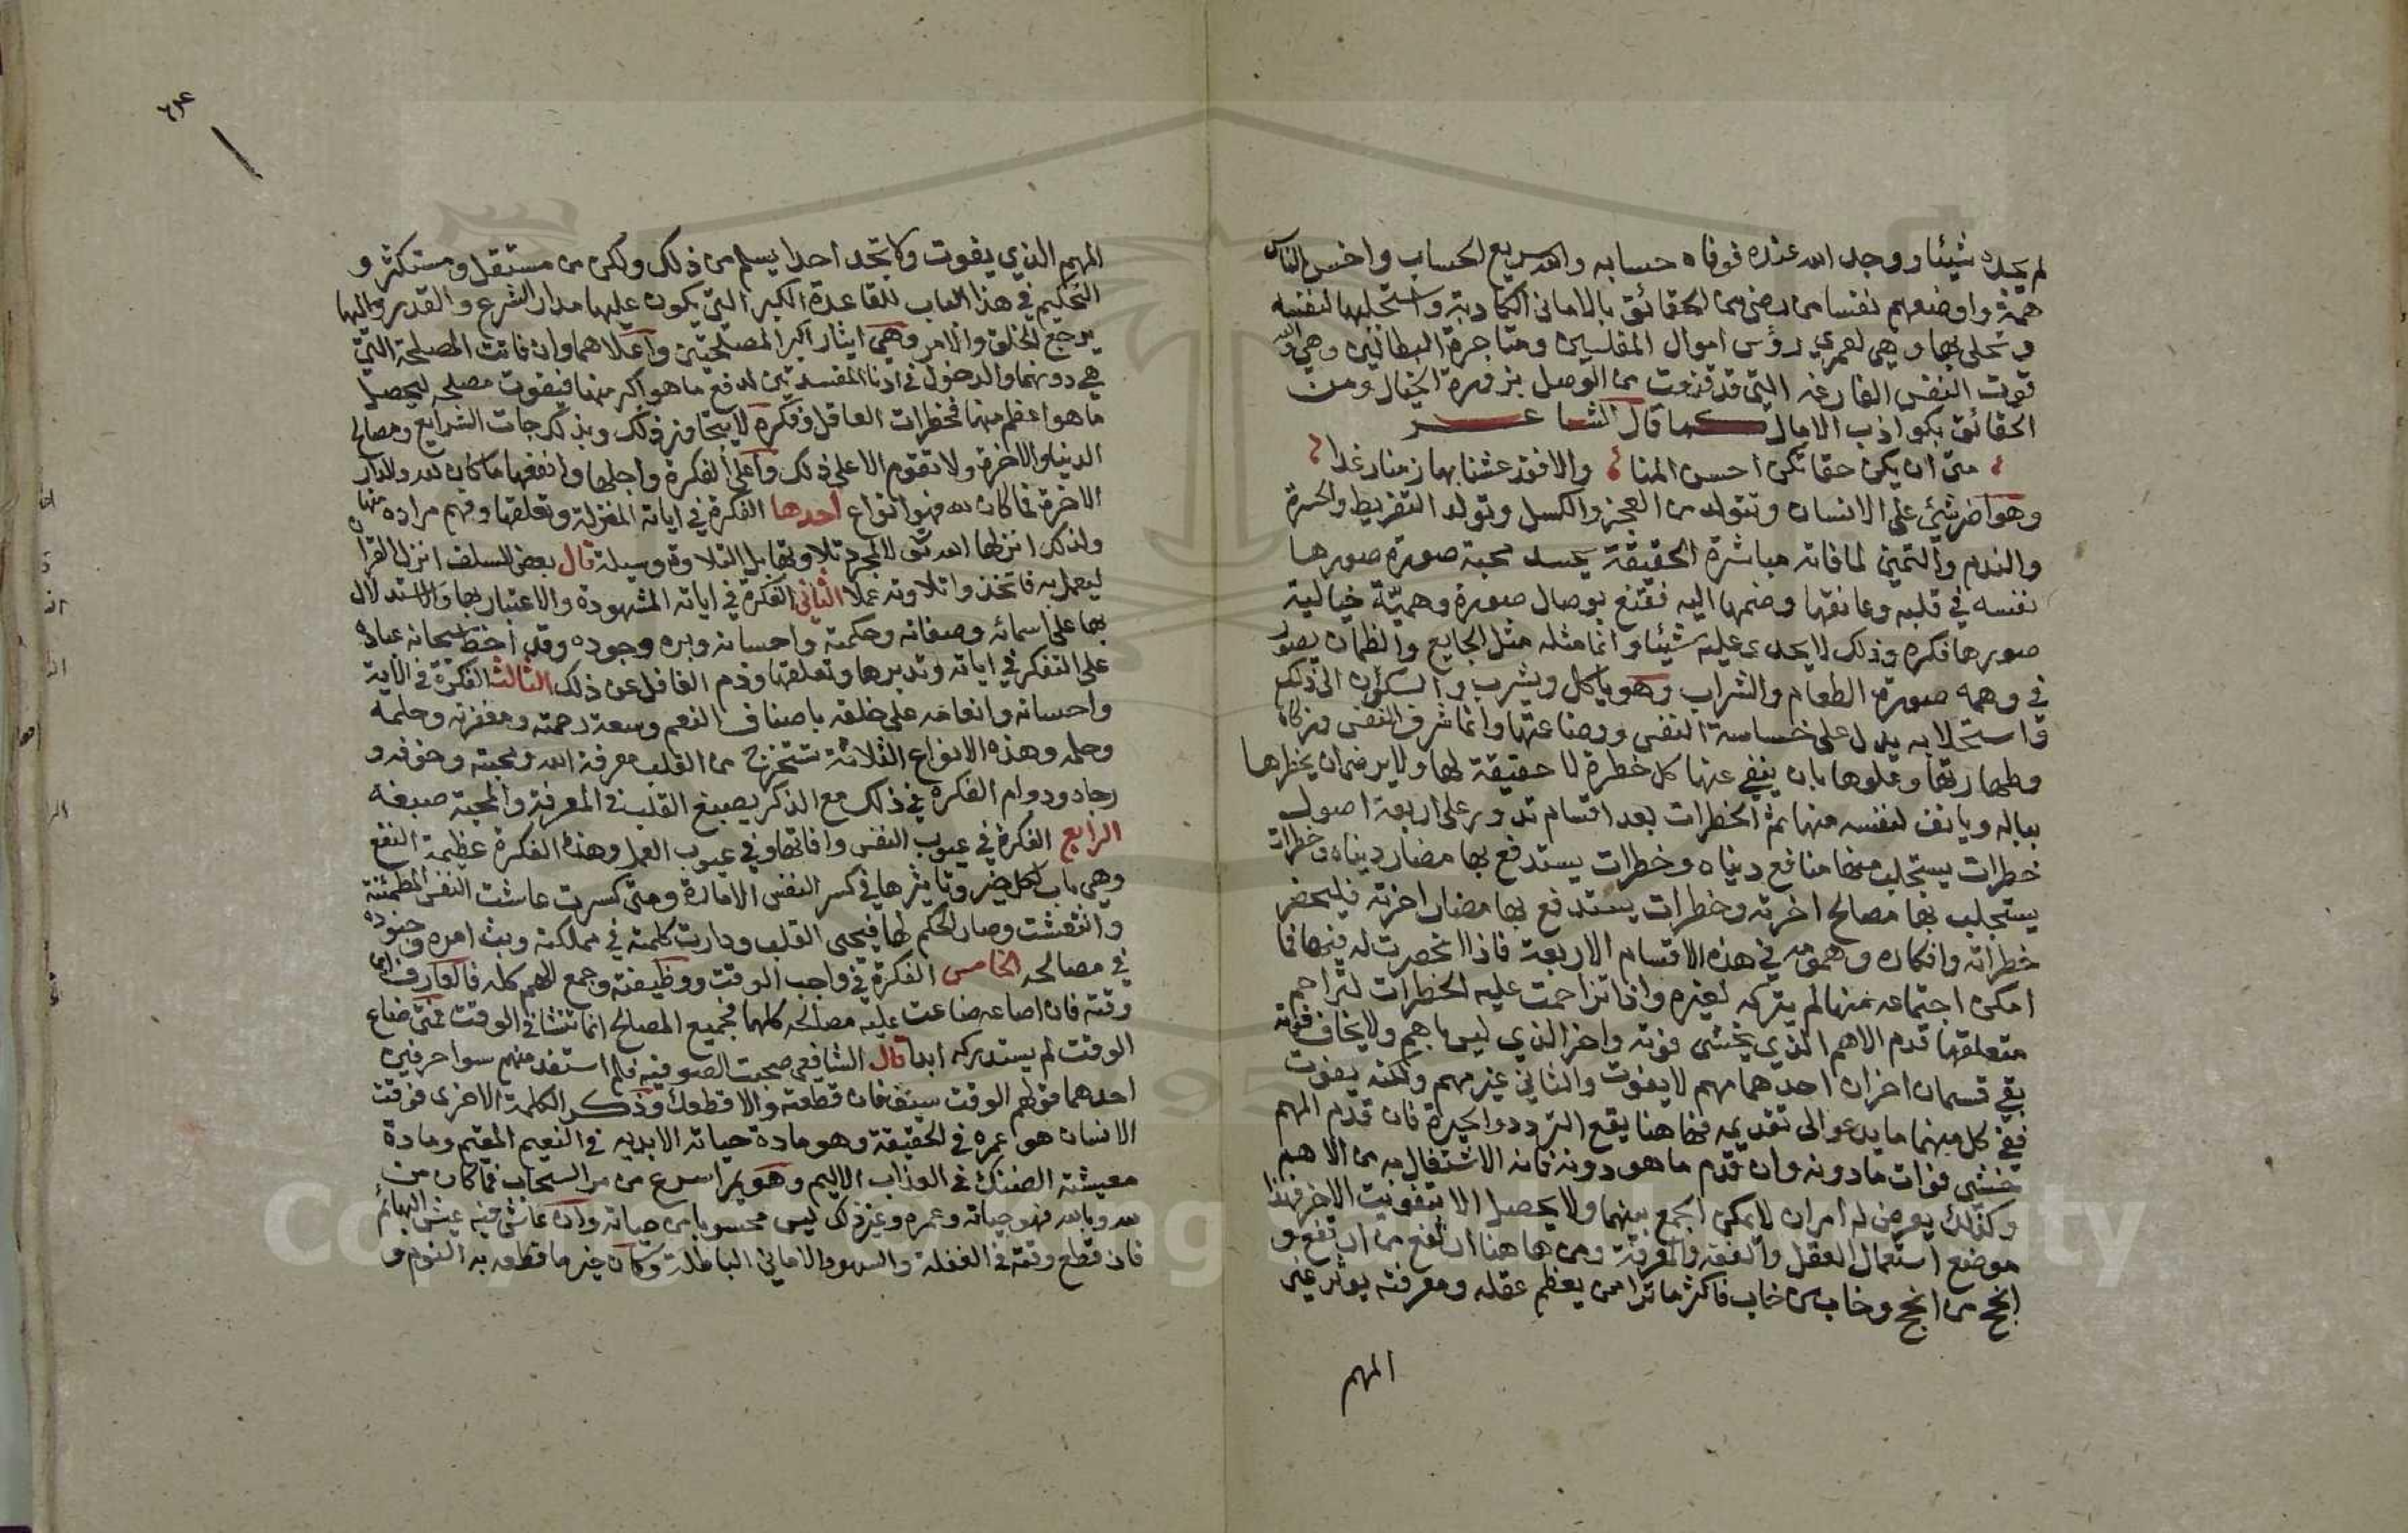 لم يجده شيئا ووجد الله عنده فوفاه حسابه والله سريع الحساب واخس الناس
همة واوضعهم نفسا من رضي من الحقائق بالاماني الكاذبة واستجلبها لنفسه
وتحلى بها وهي لعمري رؤس اموال المفلسين ومتاجرة البطالين وهي
قوت النفس الفارغه التي قد قنعت من الوصل بزورة الخيال ومن
الحقائق بكواذب الامال كما قال الشاعر
متى ان يكن حقا تكن احسن المنا والا فقد عشنا بها زمنا رغدا
وهو اضر شيء على الانسان وتتولد من العجز والكسل وتولد التفريط والحسرة
والندم والتمني لما فاته مباشرة الحقيقة بجسد محبة صورة صورها
نفسه في قلبه وعانقها وضمها اليه فقنع بوصال صورة وهمية خيالية
صورها فكره وذلك لا يجدي عليه شيئا وانما مثله مثل الجايع والظمان يصور
في وهمه صورة الطعام والشراب وهو ياكل ويشرب والسكون الى ذلك
واستحلابه يدل على خساسة النفس ووضاعتها وانما شرف النفس وزكاه
وطهارتها وعلوها بان ينفي عنها كل خطرة لا حقيقة لها ولا يرضى ان يخطرها
بباله ويانف لنفسه منها ثم الخطرات بعد اقسام تدور على اربعة اصول
خطرات يستجلب منها منافع دنياه وخطرات يستدفع بها مضار دنياه وخطرات
يستجلب بها مصالح اخرته وخطرات يستدفع بها مضار اخرته فليحضر
خطراته وافكاره وهمومه في هذه الاقسام الاربعة فاذا انحصرت له فيها فما
امكن اجتماعه منها لم يتركه لغيره واذا تزاحمت عليه الخطرات لتزاحم
متعلقها قدم الاهم الذي يخشى فوته واخر الذي ليس باهم ولا يخاف فواته
بقي قسمان اخران احدهما مهم لا يفوت والثاني غير مهم ولكنه يفوت
ففي كل منهما ما يدعو الى تقديمه فها هنا يقع التردد والحيرة فان قدم المهم
خشي فوات ما دونه وان قدم ما هو دونه فاته الاشتغال به من الاهم
وكذلك يعرض له امران لا يمكن الجمع بينهما ولا يحصل الا بتفويت الاخر فهذا
موضع استعمال العقل والفقه والمعرفة ومن هاهنا ارتفع من ارتفع و
انجح من انجح وخاب من خاب فاكثر ما ترا من يعظم عقله ومعرفته يوثر غير
المهم
المهم الذي يفوت ولا تجد احدا يسلم من ذلك ولكن من مستقل ومستكثر و
التحكيم في هذا الباب للقاعدة الكبرا التي يكون عليها مدار الشرع والقدر واليها
يرجع الخلق والامر وهي ايثار اكبر المصلحتين واعلاهما وان فاتت المصلحة التي
هي دونهما والدخول في ادنا المفسدتين لدفع ما هو اكبر منها فيفوت مصلحه ليحصل
ما هو اعظم منها فخطرات العاقل وفكره لا يتجاوز ذلك وبذلك جات الشرايع ومصالح
الدنيا والاخرة ولا تقوم الا على ذلك واعلى الفكرة واجلها وانفعها ما كان لله والدار
الاخرة فما كان لله فهو انواع احدها الفكرة في اياته المنزلة وتعلقها وفهم مراده منها
ولذلك انزلها الله تعالى لا لمجرد تلاوتها بل التلاوة وسيلة قال بعض السلف انزل القران
ليعمل به فاتخذوا تلاوته عملا الثاني الفكرة في اياته المشهودة والاعتبار بها والاستدلال
بها على اسمائه وصفاته وحكمته واحسانه وبره وجوده وقد احض سبحانه عباده
على التفكر في اياته وتدبرها وتعلقها وذم الغافل عن ذلك الثالث الفكرة في الايه
واحسانه وانعامه على خلقه باصناف النعم وسعة رحمته ومغفرته وحلمه
وحلمه وهذه الانواع الثلاثة تستخرج من القلب معرفة الله ومحبته وخوفه و
رجاه ودوام الفكرة في ذلك مع الذكر يصبغ القلب في المعرفة والمحبة صبغة
الرابع الفكرة في عيوب النفس وافاتها وفي عيوب العمل وهذه الفكرة عظيمة النفع
وهي باب لكل خير وتاثيرها في كسر النفس الامارة ومتى كسرت عاشت النفس المطمئنة
وانتعشت وصار الحكم لها فيحيى القلب ودارت كلمته في مملكته وبث امره وجنوده
في مصالحه الخامس الفكرة في واجب الوقت ووظيفته وجمع الهم كله فالعارف ابن
وقته فان اضاعه ضاعت عليه مصالحه كلها فجميع المصالح انما تنشا في الوقت فمتى ضاع
الوقت لم يستدركه ابدا قال الشافعي صحبت الصوفيه فلم استفد منهم سوا حرفين
احدهما قولهم الوقت سيف فان قطعته والا قطعك وذكر الكلمة الاخرى فوقت
الانسان هو عمره في الحقيقة وهو مادة حياته الابديه في النعيم المقيم ومادة
معيشته الضنك في العذاب الاليم وهو يمر اسرع من مر السحاب فما كان من
لله وبالله فهو حياته وعمره وغير ذلك ليس محسوبا من حياته وان عاش فيه عيش البهائم
فان قطع وقته في الغفلة والسهو والاماني الباطلة وكان خير ما قطعه به النوم و